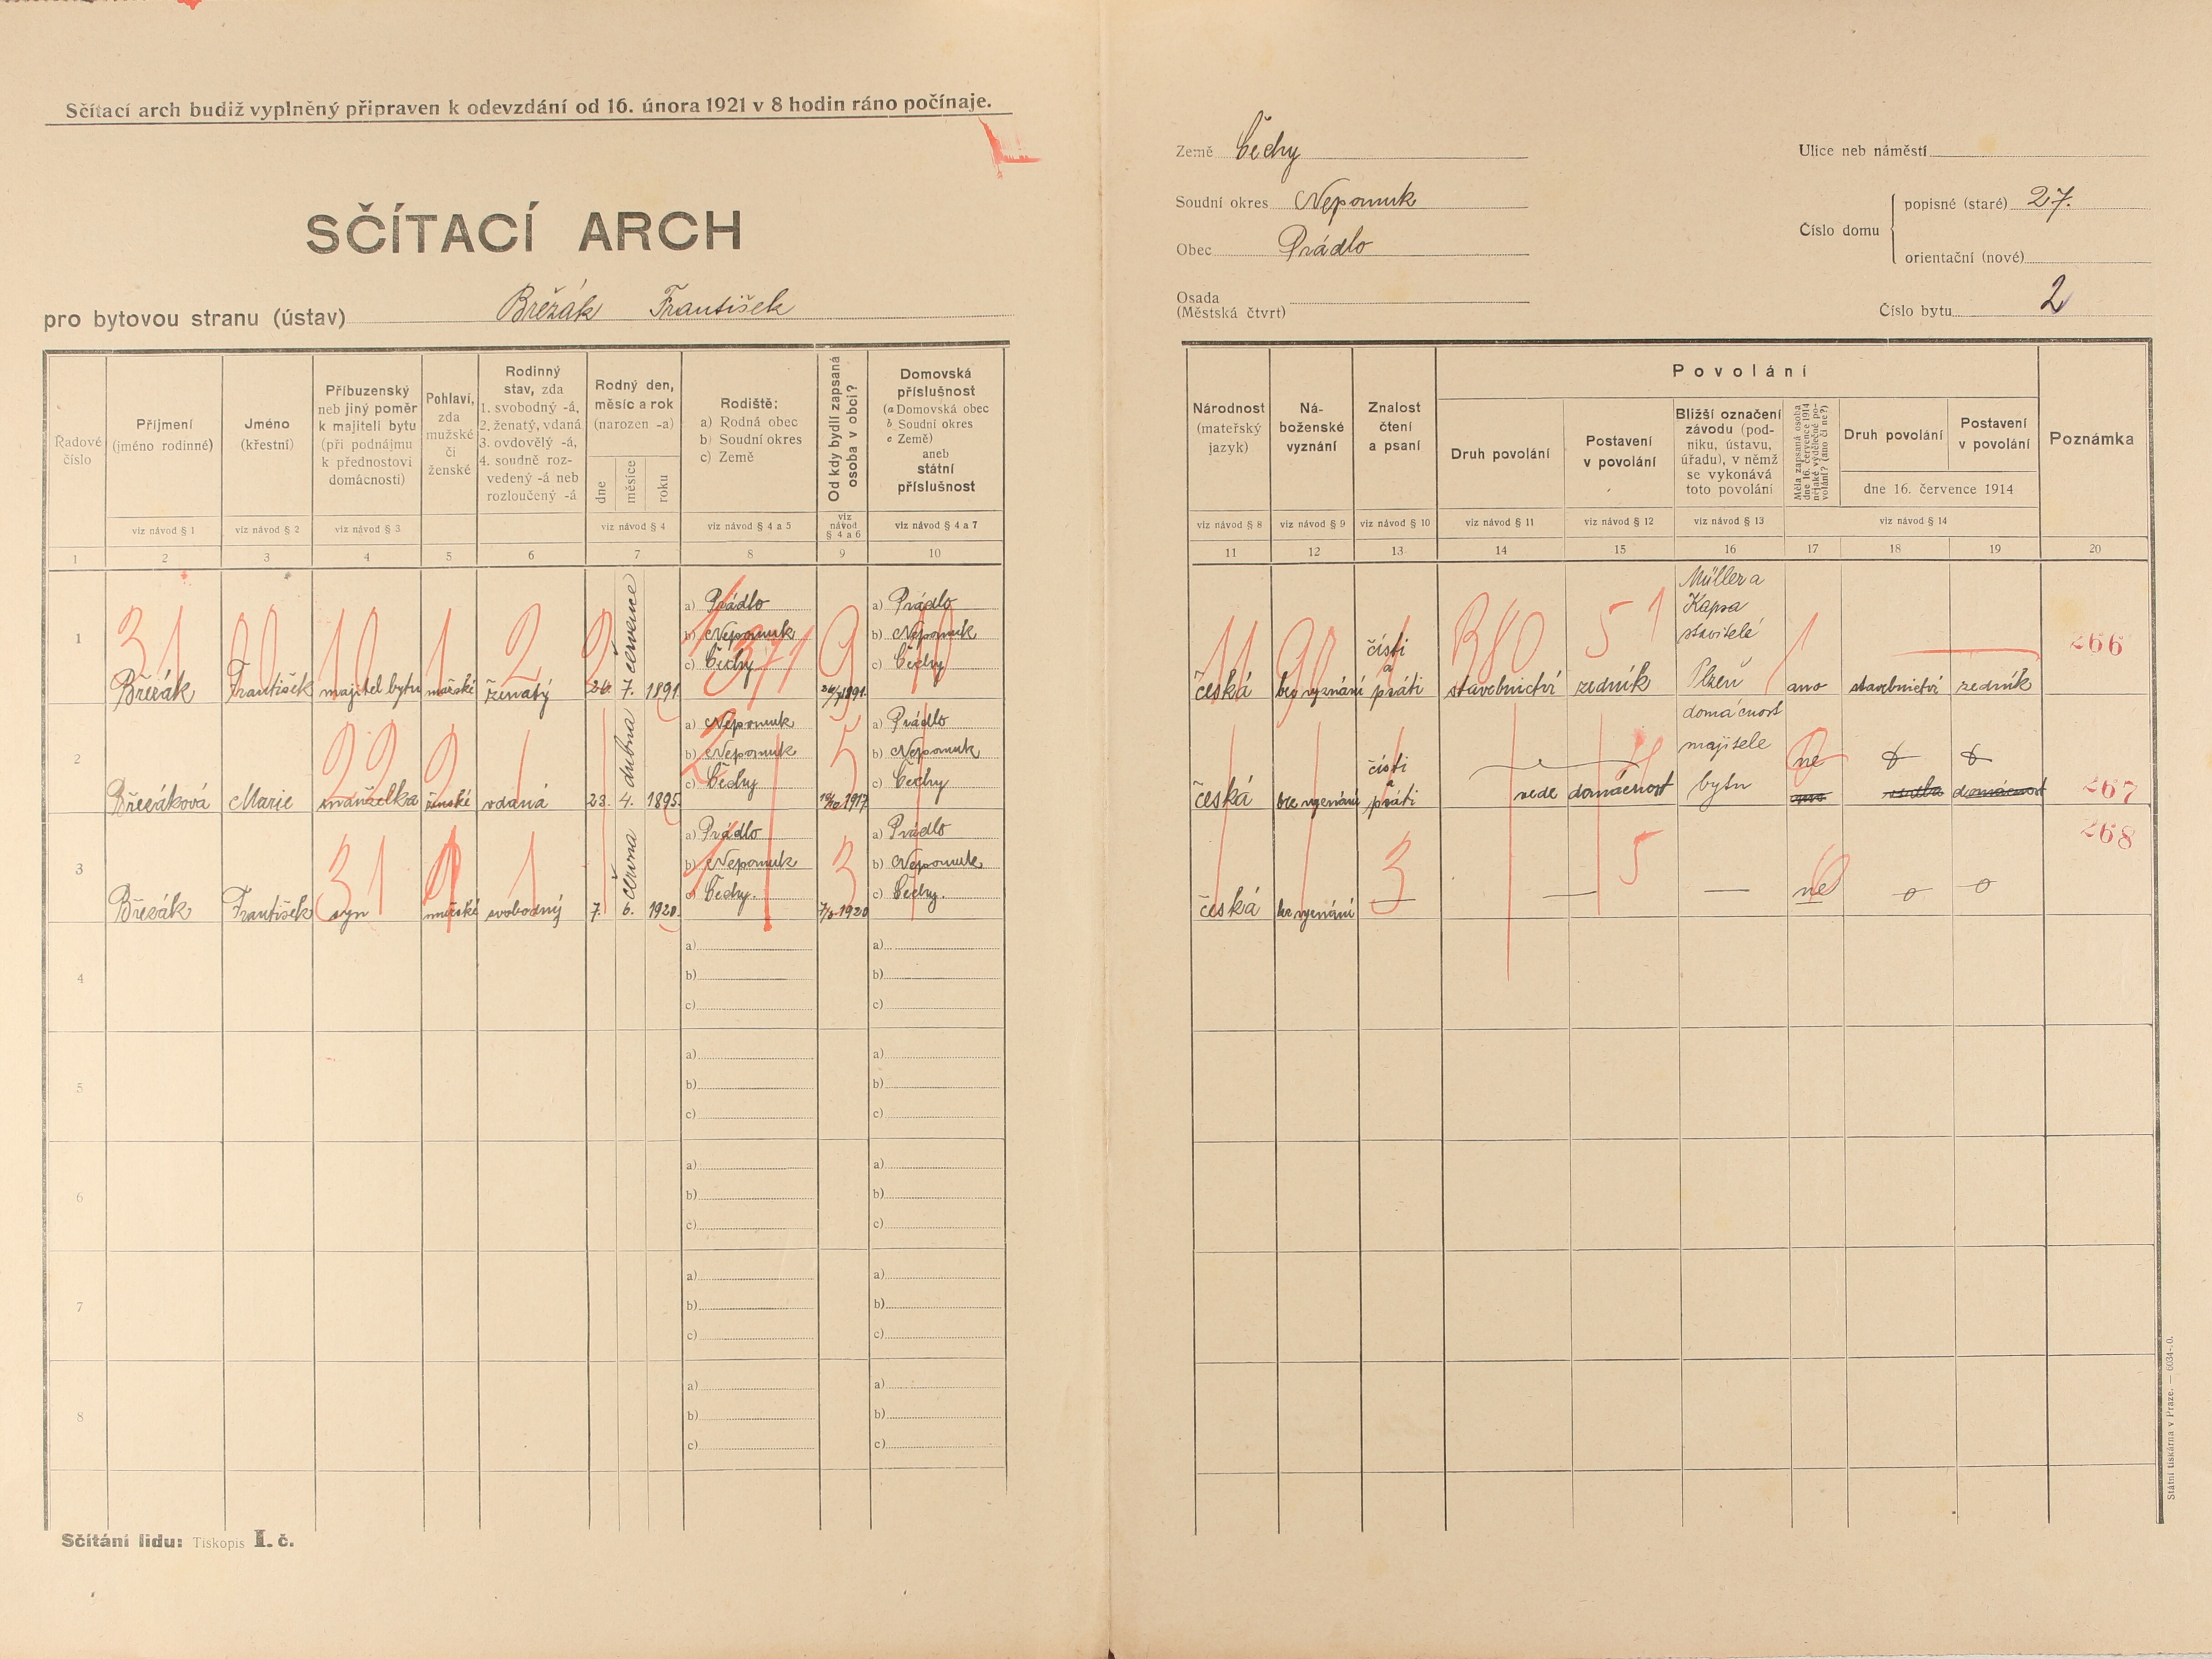 Sčítací arch budiž vyplněný připraven k odevzdání od 16. února 1921 v 8 hodin ráno počínaje.
SČÍTACÍ ARCH
pro bytovou stranu (ústav) Břézák František
Země Čechy
Soudní okres Nepomuk
Obec Prádlo
Osada
(Městská čtvrt)
Ulice neb náměstí
Číslo domu
popisné (staré) 27.
orientační (nové)
Číslo bytu 2
Řadové
číslo
Příjmení
(jméno rodinné)
viz návod § 1
Jméno
(křestní)
viz návod § 2
Příbuzenský
neb jiný poměr
k majiteli bytu
(při podnájmu
k přednostovi
domácnosti)
viz návod § 3
Pohlaví,
zda
mužské
či
ženské
Rodinný
stav, zda
1. svobodný -á,
2. ženatý, vdaná
3. ovdovělý -á,
4. soudně roz-
vedený -á neb
rozloučený -á
Rodný den,
měsíc a rok
(narozen -a)
dne
měsíce
roku
viz návod § 4
Rodiště:
a) Rodná obec
b) Soudní okres
c) Země
viz návod § 4 a 5
Od kdy bydlí zapsaná
osoba v obci?
viz
návod
§ 4 a 6
Domovská
příslušnost
(a Domovská obec
b Soudní okres
c Země)
aneb
státní
příslušnost
viz návod § 4 a 7
Národnost
(mateřský
jazyk)
viz návod § 8
Ná-
boženské
vyznání
viz návod § 9
Znalost
čtení
a psaní
viz návod § 10
Povolání
Druh povolání
viz návod § 11
Postavení
v povolání
viz návod § 12
Bližší označení
závodu (pod-
niku, ústavu,
úřadu), v němž
se vykonává
toto povolání
viz návod § 13
Měla zapsaná osoba
dne 16. července 1914
nějaké výdělečné po-
volání? (ano či ne?)
Druh povolání
Postavení
v povolání
dne 16. července 1914
viz návod § 14
Poznámka
1 2 3 4 5 6 7 8 9 10
11 12 13 14 15 16 17 18 19 20
1
Břézák František majitel bytu mužské ženatý 26. 7. července 1891
a) Prádlo
b) Nepomuk
c) Čechy
26/7 1891.
a) Prádlo
b) Nepomuk
c) Čechy
česká bez vyznání
čísti
a
psáti
stavebnictví zedník
Müller a
Kapsa
stavitelé
Plzeň
ano stavebnictví zedník
266
2
Břézáková Marie manželka ženské vdaná 23. 4. dubna 1895.
a) Nepomuk
b) Nepomuk
c) Čechy
1917
a) Prádlo
b) Nepomuk
c) Čechy
česká bez vyznání
čísti
a
psáti
vede domácnost
domácnost
majitele
bytu
ne
ano vedla domácnost
267
3
Břézák František syn mužské svobodný 7. 6. června 1920.
a) Prádlo
b) Nepomuk
c) Čechy.
7/6 1920
a) Prádlo
b) Nepomuk
c) Čechy.
česká bez vyznání — — — ne o o
268
31 00 10 1 2 2 1 371 9 10
11 90 1 B80 51 1
22 2 1 1 2 5 1
31 1 1 1 1 3 1
3 5 6
4
a)
b)
c)
a)
b)
c)
5
a)
b)
c)
a)
b)
c)
6
a)
b)
c)
a)
b)
c)
7
a)
b)
c)
a)
b)
c)
8
a)
b)
c)
a)
b)
c)
Sčítání lidu: Tiskopis I. č.
Státní tiskárna v Praze. — 6034-20.